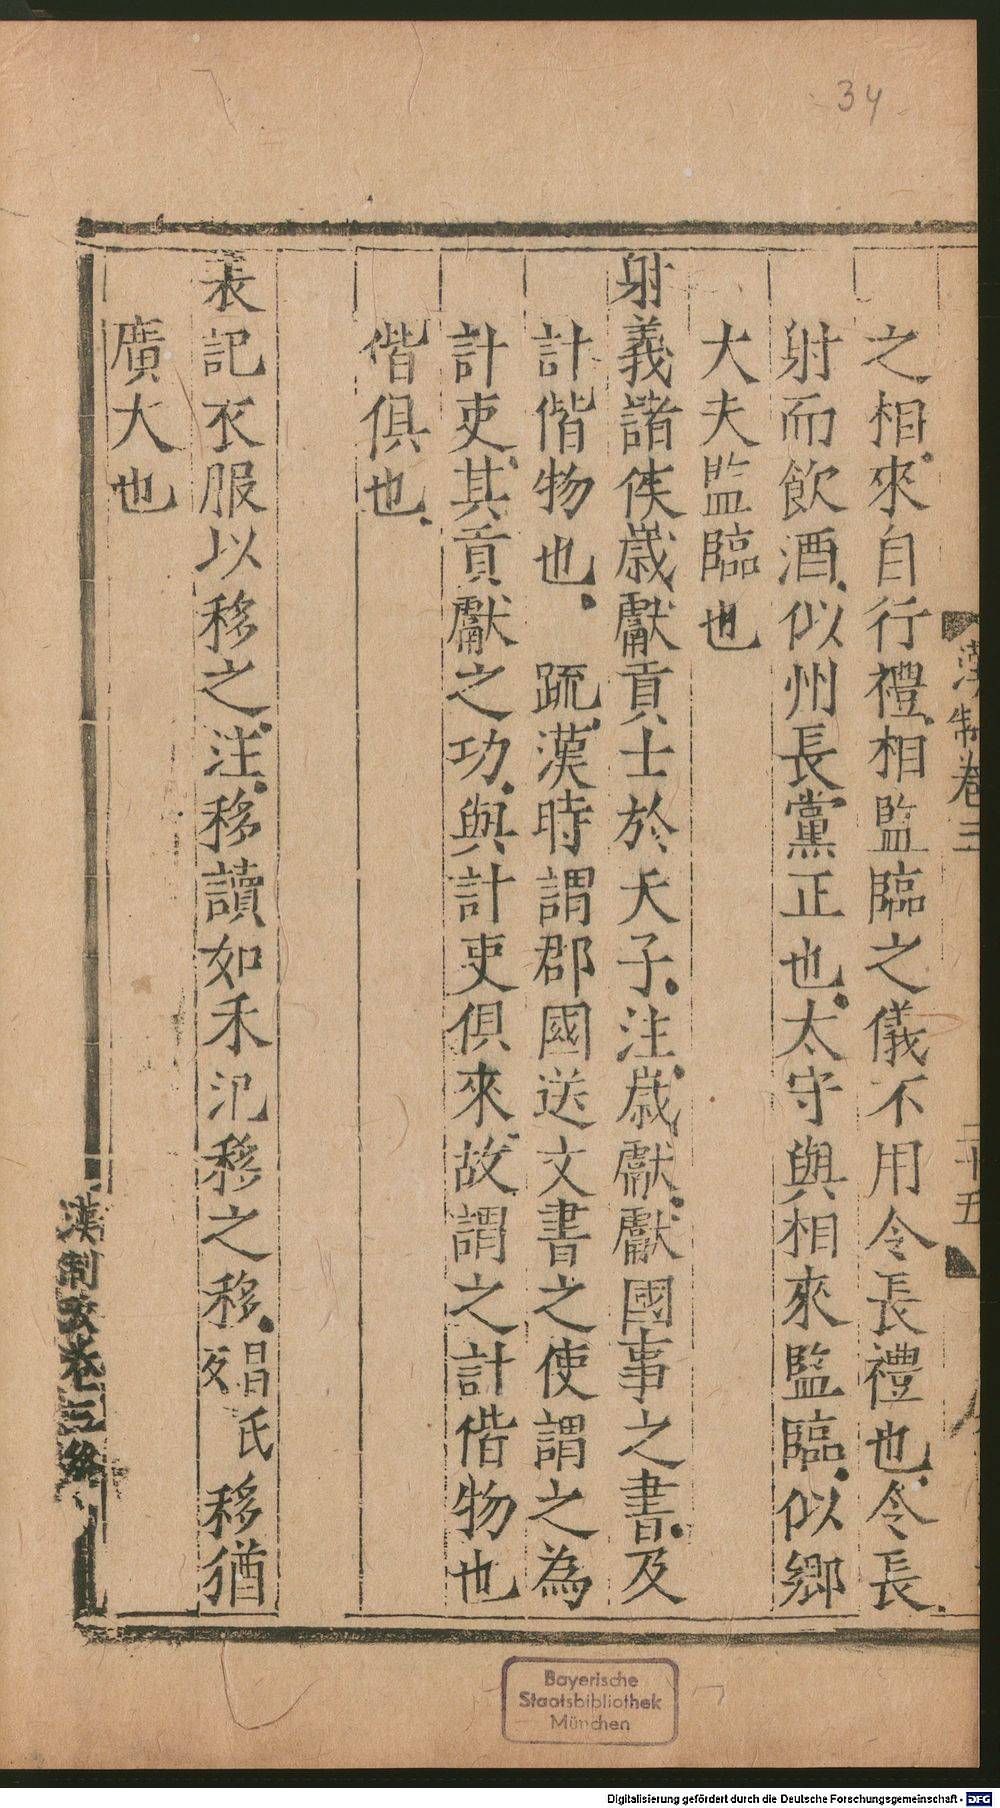 34
漢制卷三
二十五
之相來自行禮相監臨之儀不用令長禮也令長
射而飲酒似州長黨正也太守與相來監臨似鄉
大夫監臨也
射義諸侯歲獻貢士於天子注歲獻獻國事之書及
計偕物也 疏漢時謂郡國送文書之使謂之為
計吏其貢獻之功與計吏俱來故謂之計偕物也
偕俱也
表記衣服以移之注移讀如禾氾移之移昌氏反移猶
廣大也
漢制攷卷三終
Bayerische
Staatsbibliothek
München
Digitalisierung gefördert durch die Deutsche Forschungsgemeinschaft - DFG